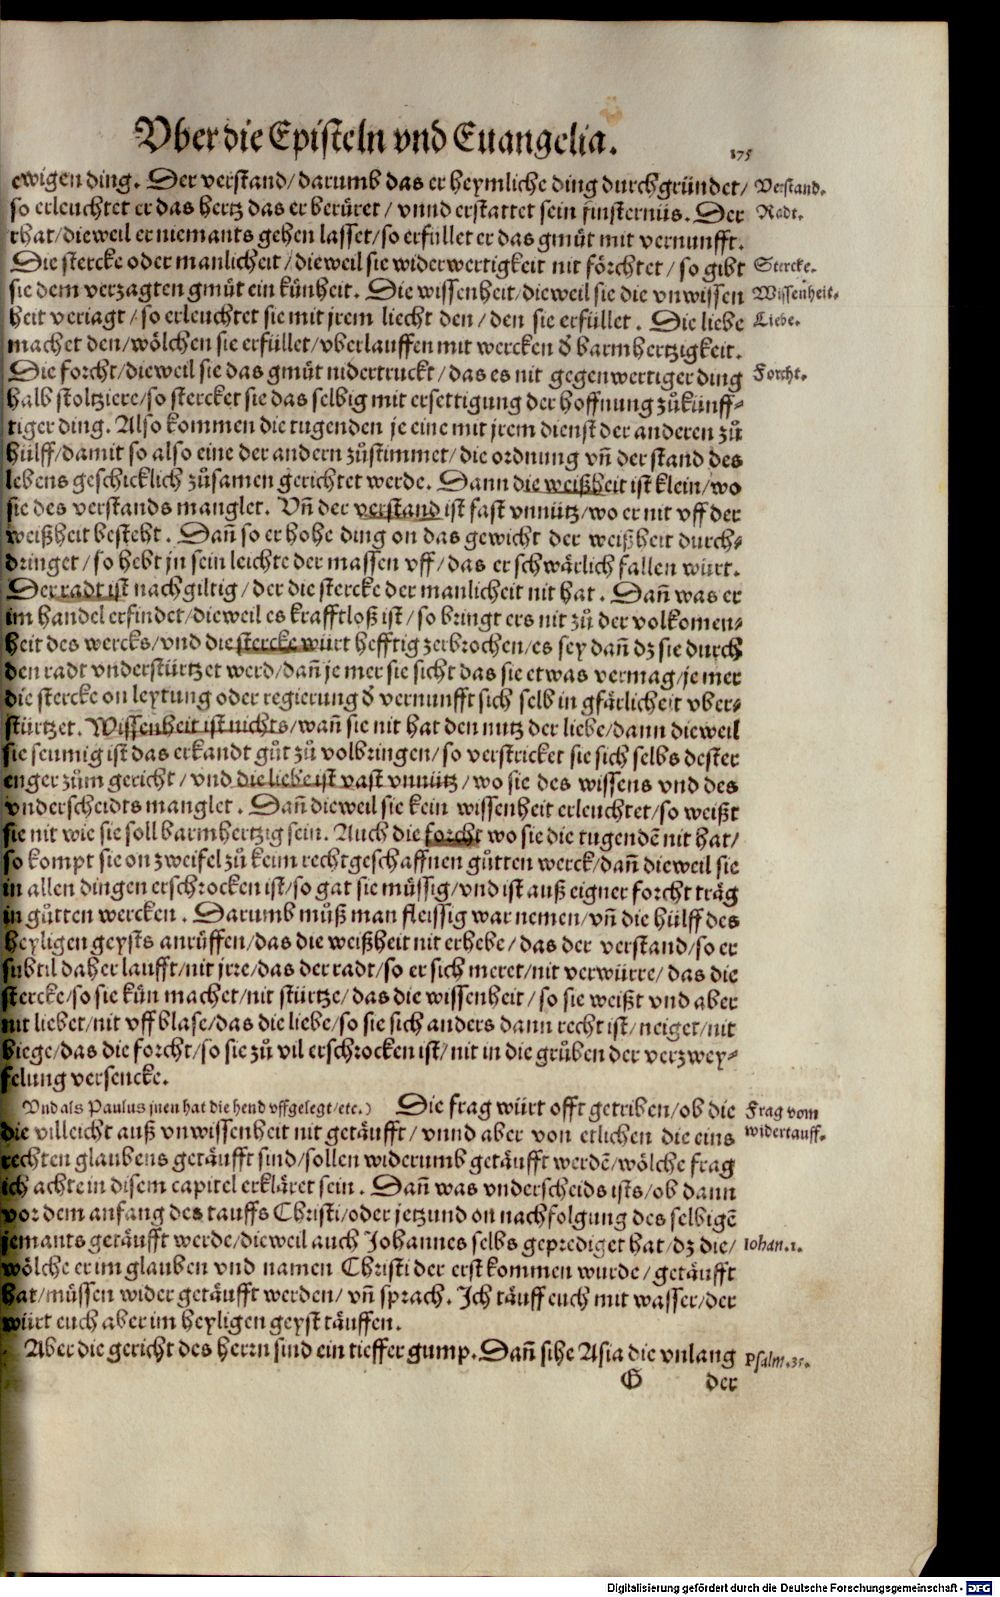 Vber die Episteln vnd Euangelia.
175
ewigen ding. Der verstand/darumb das er heymliche ding durchgründet/ Verstand.
so erleuchtet er das hertz das er berüret/ vnnd erstattet sein finsternüs. Der Radt.
rhat/dieweil er niemants gehen lasset/so erfüllet er das gmüt mit vernunfft.
Die stercke oder manlicheit/dieweil sie widerwertigkeit nit förchtet/so gibt Stercke.
sie dem verzagten gmüt ein künheit. Die wissenheit/dieweil sie die vnwissen Wissenheit.
heit veriagt/so erleuchtet sie mit jrem liecht den/den sie erfüllet. Die liebe Liebe.
machet den/wölchen sie erfüllet/vberlauffen mit wercken ð barmhertzigkeit.
Die forcht/dieweil sie das gmüt nidertruckt/das es nit gegenwertiger ding Forcht.
halb stoltziere/so stercket sie das selbig mit ersettigung der hoffnung zůkünff-
tiger ding. Also kommen die tugenden je eine mit jrem dienst der anderen zů
hülff/damit so also eine der andern zůstimmet/die ordnung vñ der stand des
lebens geschicklich zůsamen gerichtet werde. Dann die weißheit ist klein/wo
sie des verstands manglet. Vñ der verstand ist fast vnnütz/wo er nit vff der
weißheit besteht. Dañ so er hohe ding on das gewicht der weißheit durch-
dringet/so hebt jn sein leichte der massen vff/das er schwärlich fallen würt.
Der radt ist nachgiltig/der die stercke der manlicheit nit hat. Dañ was er
im handel erfindet/dieweil es krafftloß ist/so bringt ers nit zů der volkomen-
heit des wercks/vnd die stercke würt hefftig zerbrochen/es sey dañ dz sie durch
den radt vnderstürtzet werd/dañ je mer sie sicht das sie etwas vermag/je mer
die stercke on leytung oder regierung ð vernunfft sich selb in gfärlicheit vber-
stürtzet. Wissenheit ist nichts/wañ sie nit hat den nutz der liebe/dann dieweil
sie seumig ist das erkandt gůt zů volbringen/so verstricket sie sich selbs dester
enger zům gericht/vnd die liebe ist vast vnnütz/wo sie des wissens vnd des
vnderscheidts manglet. Dañ dieweil sie kein wissenheit erleuchtet/so weißt
sie nit wie sie soll barmhertzig sein. Auch die forcht wo sie die tugendē nit hat/
so kompt sie on zweifel zů keim rechtgeschaffnen gůtten werck/dañ dieweil sie
in allen dingen erschrocken ist/so gat sie müssig/vnd ist auß eigner forcht träg
in gůtten wercken. Darumb můß man fleissig war nemen/vñ die hülff des
heyligen geysts anrůffen/das die weißheit nit erhebe/das der verstand/so er
subtil daher laufft/nit jrre/das der radt/so er sich meret/nit verwürre/das die
stercke/so sie kün machet/nit stürtze/das die wissenheit/so sie weißt vnd aber
nit liebet/nit vff blase/das die liebe/so sie sich anders dann recht ist/neiget/nit
biege/das die forcht/so sie zů vil erschrocken ist/nit in die grůben der verzwey-
felung versencke.
Vnd als Paulus jnen hat die hend vffgelegt/etc.) Die frag würt offt getriben/ob die Frag vom
die villeicht auß vnwissenheit nit getäufft/vnnd aber von etlichen die eins widertauff.
rechten glaubens getäufft sind/sollen widerumb getäufft werdē/wölche frag
ich acht ein disem capitel erkläret sein. Dañ was vnderscheids ists/ob dann
vor dem anfang des tauffs Christi/oder jetzund on nachfolgung des selbigē
jemants getäufft werde/dieweil auch Johannes selbs geprediget hat/dz die/ Iohan.1.
wölche er im glauben vnd namen Christi der erst kommen wurde/getäufft
hat/müssen wider getäufft werden/vñ sprach. Ich täuff euch mit wasser/der
würt euch aber im heyligen geyst täuffen.
Aber die gericht des herrn sind ein tieffer gump. Dañ sihe Asia die vnlang Psalm.35.
G der
Digitalisierung gefördert durch die Deutsche Forschungsgemeinschaft - DFG